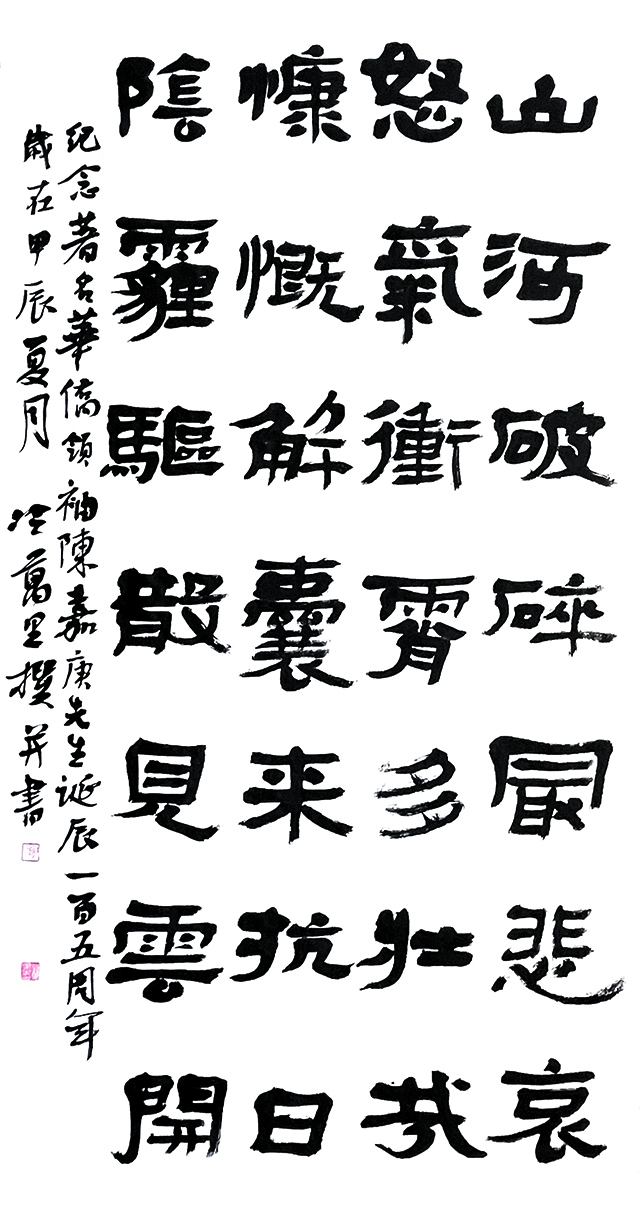 山河破碎最悲哀
怒氣衝霄多壯哉
慷慨解囊来抗日
陰霾驅散見雲開
紀念著名華僑領袖陳嘉庚先生誕辰一百五周年
歲在甲辰夏月 冷萬里撰并書